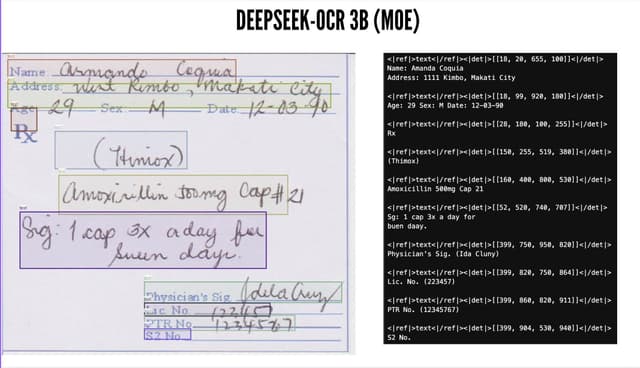 DEEPSEEK-OCR 3B (MOE)
Name Armando Coquia
Address West Rembo, Makati City
Age 29 Sex M Date 12-03-90
Rx
(Himox)
Amoxicillin 500mg Cap # 21
Sig: 1 cap 3x a day for
seven days.
Physician's Sig
Lic No 12345
PTR No 1234567
S2 No
<|ref|>text<|/ref|><|det|>[[18, 20, 655, 100]]<|/det|>
Name: Amanda Coquia
Address: 1111 Kimbo, Makati City
<|ref|>text<|/ref|><|det|>[[18, 99, 920, 180]]<|/det|>
Age: 29 Sex: M Date: 12-03-90
<|ref|>text<|/ref|><|det|>[[28, 180, 100, 255]]<|/det|>
Rx
<|ref|>text<|/ref|><|det|>[[150, 255, 519, 380]]<|/det|>
(Thimox)
<|ref|>text<|/ref|><|det|>[[160, 400, 800, 530]]<|/det|>
Amoxicillin 500mg Cap 21
<|ref|>text<|/ref|><|det|>[[52, 520, 740, 707]]<|/det|>
Sg: 1 cap 3x a day for
buen daay.
<|ref|>text<|/ref|><|det|>[[399, 750, 950, 820]]<|/det|>
Physician's Sig. (Ida Cluny)
<|ref|>text<|/ref|><|det|>[[399, 820, 750, 864]]<|/det|>
Lic. No. (223457)
<|ref|>text<|/ref|><|det|>[[399, 860, 820, 911]]<|/det|>
PTR No. (12345767)
<|ref|>text<|/ref|><|det|>[[399, 904, 530, 940]]<|/det|>
S2 No.